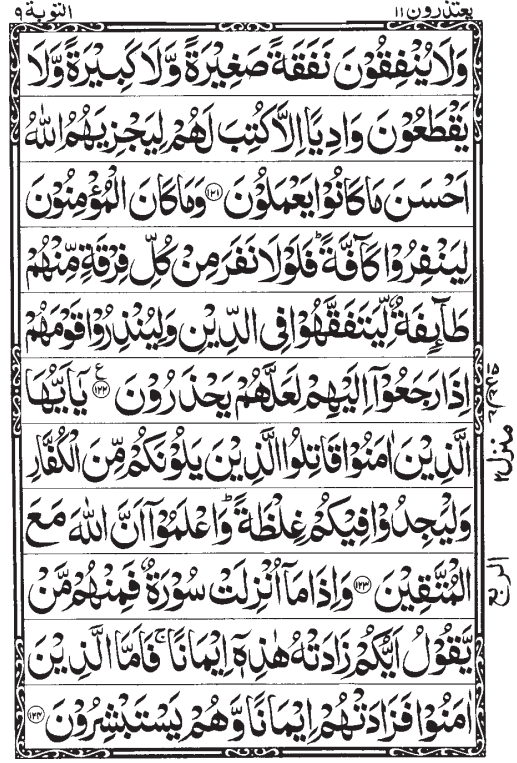 يعتذرون ١١
التوبة ٩
وَلَا يُنْفِقُوْنَ نَفَقَةً صَغِيْرَةً وَّلَا كَبِيْرَةً وَّلَا
يَقْطَعُوْنَ وَادِيًا اِلَّا كُتِبَ لَهُمْ لِيَجْزِيَهُمُ اللّٰهُ
اَحْسَنَ مَا كَانُوْا يَعْمَلُوْنَ ﴿١٢١﴾ وَمَا كَانَ الْمُؤْمِنُوْنَ
لِيَنْفِرُوْا كَآفَّةً ؕ فَلَوْلَا نَفَرَ مِنْ كُلِّ فِرْقَةٍ مِّنْهُمْ
طَآئِفَةٌ لِّيَتَفَقَّهُوْا فِى الدِّيْنِ وَلِيُنْذِرُوْا قَوْمَهُمْ
اِذَا رَجَعُوْٓا اِلَيْهِمْ لَعَلَّهُمْ يَحْذَرُوْنَ ﴿١٢٢﴾ ع يٰٓاَيُّهَا
الَّذِيْنَ اٰمَنُوْا قَاتِلُوا الَّذِيْنَ يَلُوْنَكُمْ مِّنَ الْكُفَّارِ
وَلْيَجِدُوْا فِيْكُمْ غِلْظَةً ؕ وَاعْلَمُوْٓا اَنَّ اللّٰهَ مَعَ
الْمُتَّقِيْنَ ﴿١٢٣﴾ وَاِذَا مَآ اُنْزِلَتْ سُوْرَةٌ فَمِنْهُمْ مَّنْ
يَّقُوْلُ اَيُّكُمْ زَادَتْهُ هٰذِهٖٓ اِيْمَانًا ۚ فَاَمَّا الَّذِيْنَ
اٰمَنُوْا فَزَادَتْهُمْ اِيْمَانًا وَّهُمْ يَسْتَبْشِرُوْنَ ﴿١٢٤﴾
منزل ٢
الربع